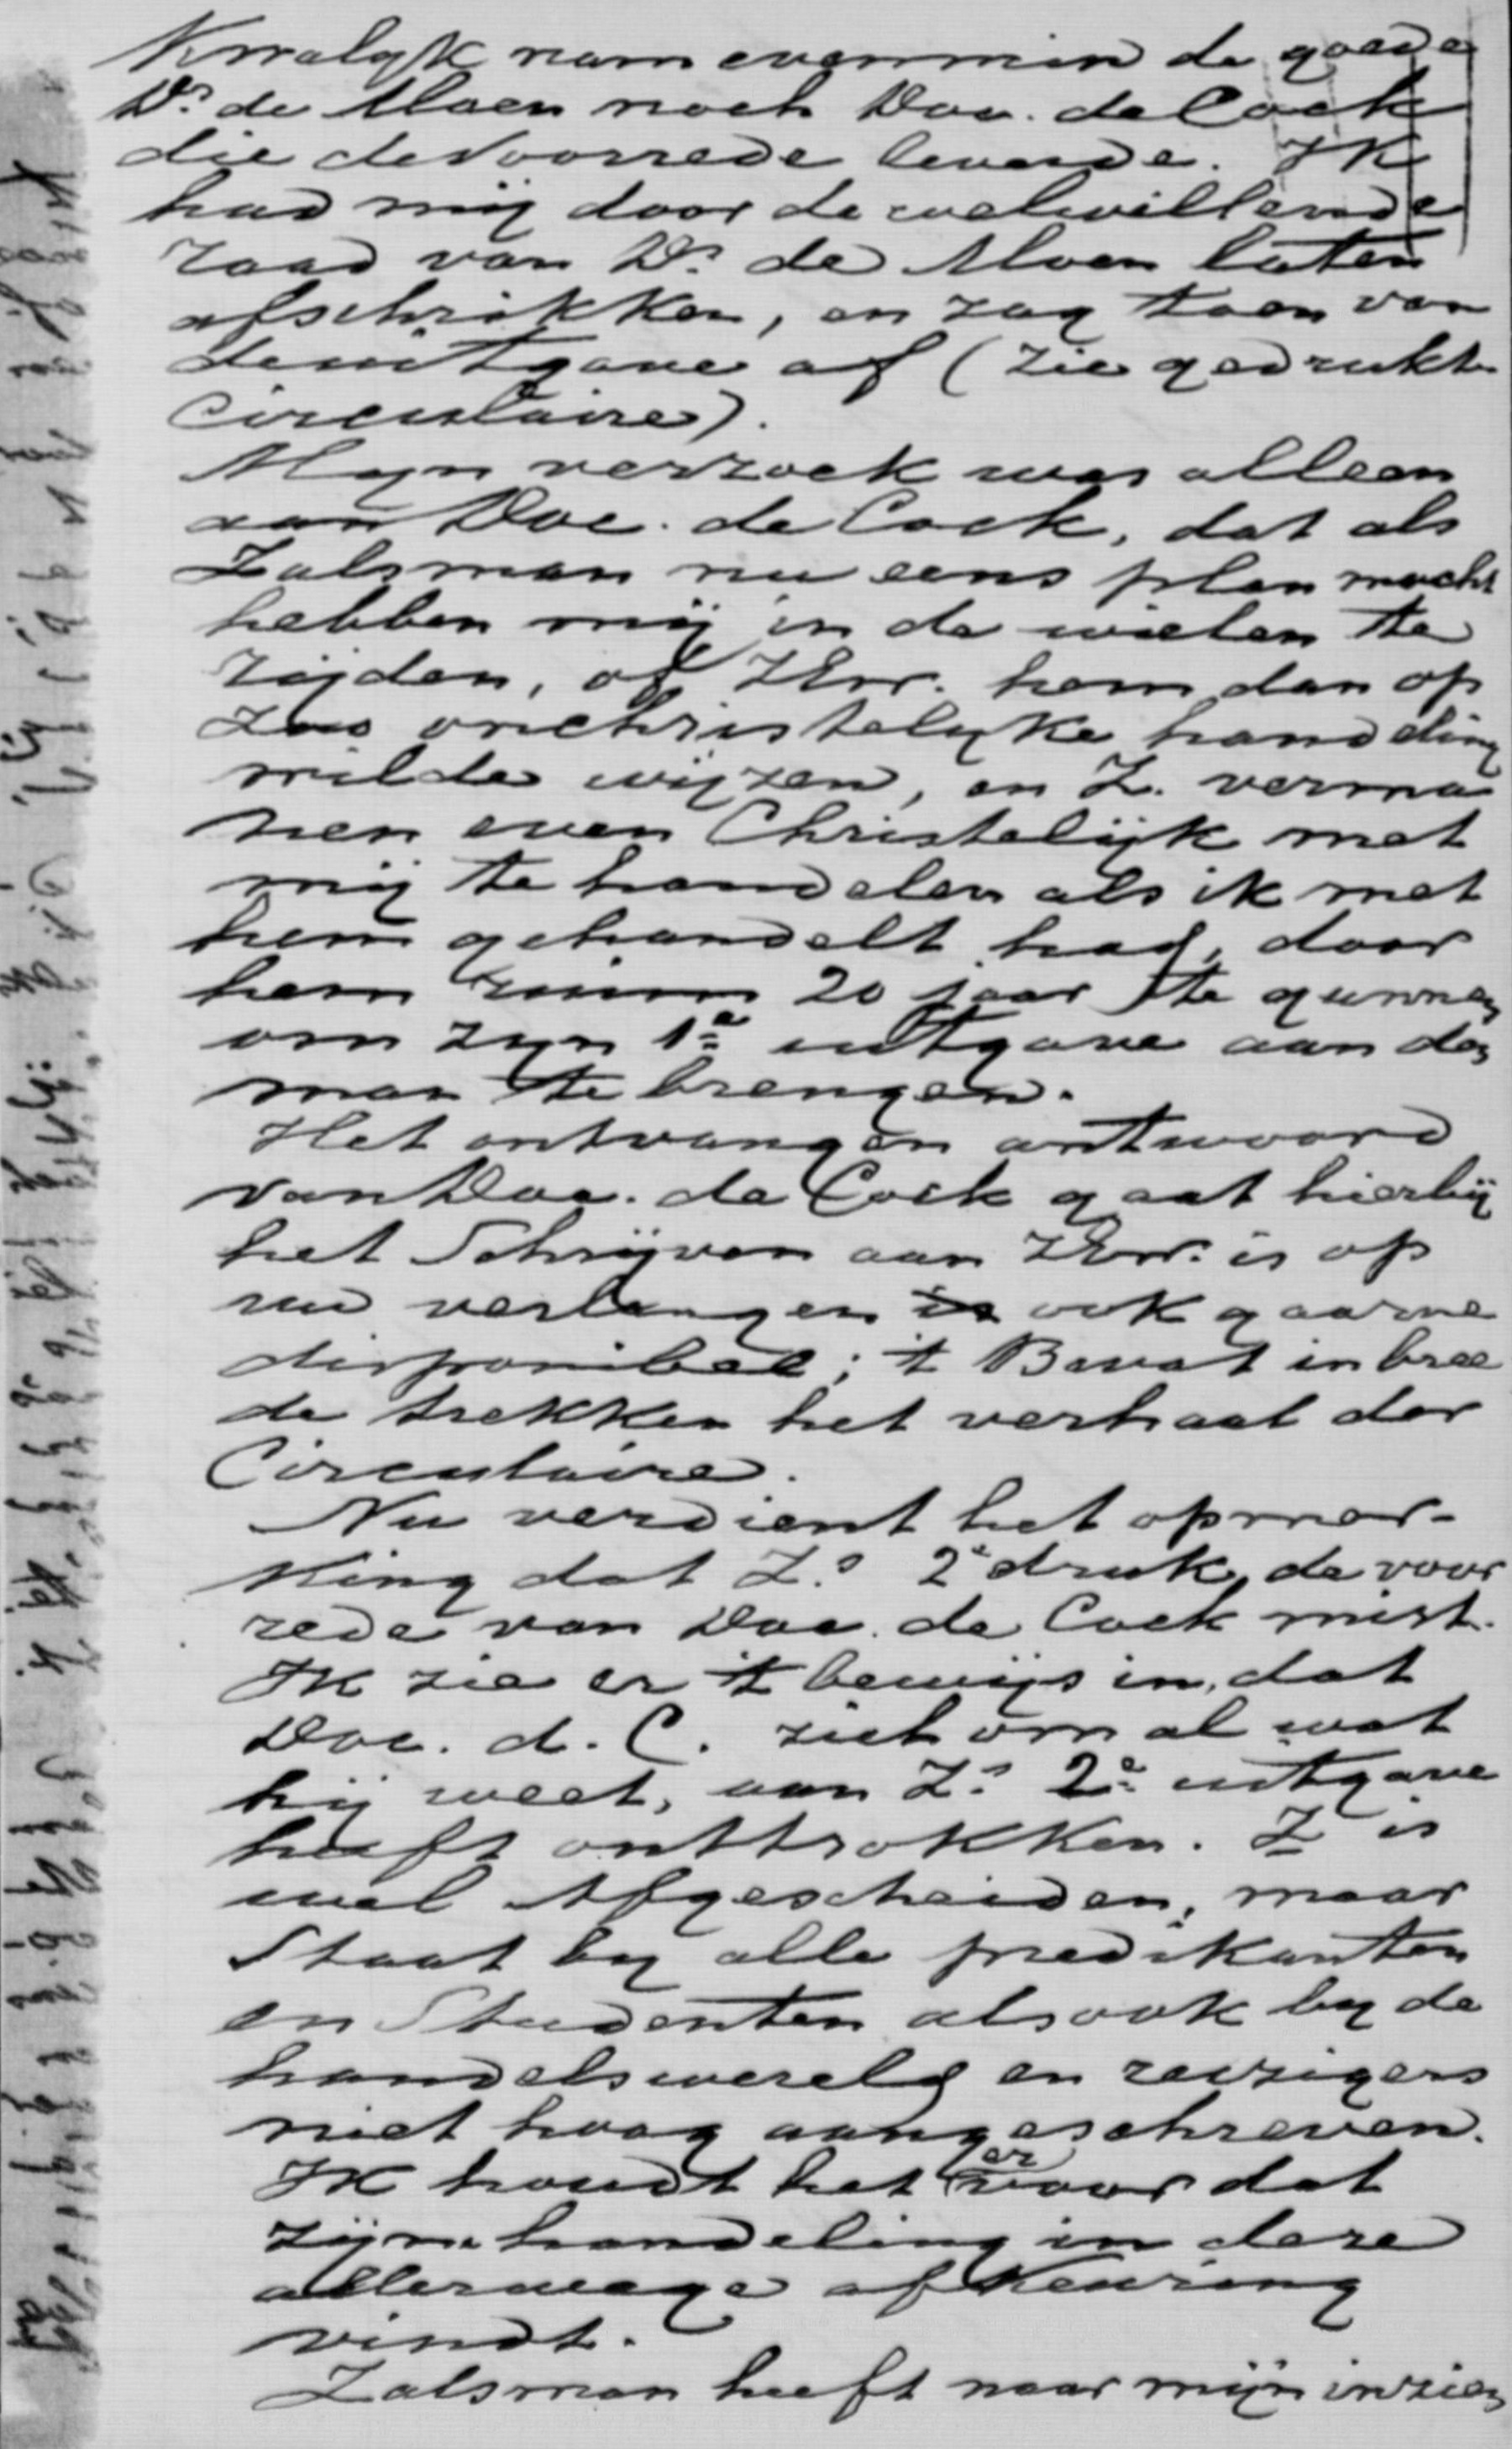 Kwalyk nam evenmin de goede
Ds. de Moen noch Doc. de Cock
die de Voorrede leverde. Ik
had mij door de welwillende
raad van Ds. de Moen laten
afschrikken, en zag toen van
de uitgave af (zie gedrukte
Circulaire).
Myn verzoek was alleen
aan Doc. de Cock, dat als
Zalsman nu eens plan mocht
hebben mij in de wielen te
rijden, of ZEerw. hem dan op
zoo onchristelyke handeling
wilde wijzen, en Z. verma
nen even Christelijk met
mij te handelen als ik met
hem gehandelt had, door
hem ruim 20 jaar te gunnen
om zyn 1e uitgave aan den
man te brengen.
Het ontvangen antwoord
van Doc. de Cock gaat hierbij
het Schrijven aan ZEerw. is op
uw verlangen ook gaarne
disponibel; 't Bevat in bree
de trekken het verhaal der
Circulaire.
Nu verdient het opmer-
king dat Z.s 2e druk, de voor
rede van Doc. de Cock mist.
Ik zie er 't bewijs in, dat
Doc. d. C. zich om al wat
hij weet, aan Z.s 2e uitgave
heeft onttrokken. Z is
wel Afgescheiden, maar
Staat by alle predikanten
en Studenten alsook by de
handelswereld en reizigers
niet hoog aangeschreven.
Ik houdt het er voor dat
zijne handeling in deze
allerwege afkeuring
vindt.
Zalsman heeft naar mijn inzien